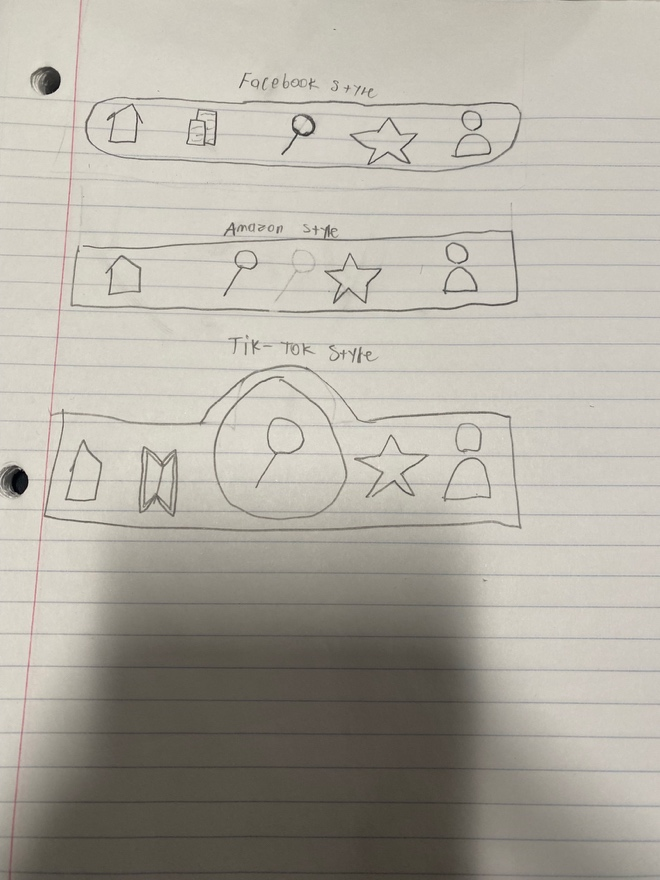 Facebook Style
Amazon Style
Tik-Tok Style